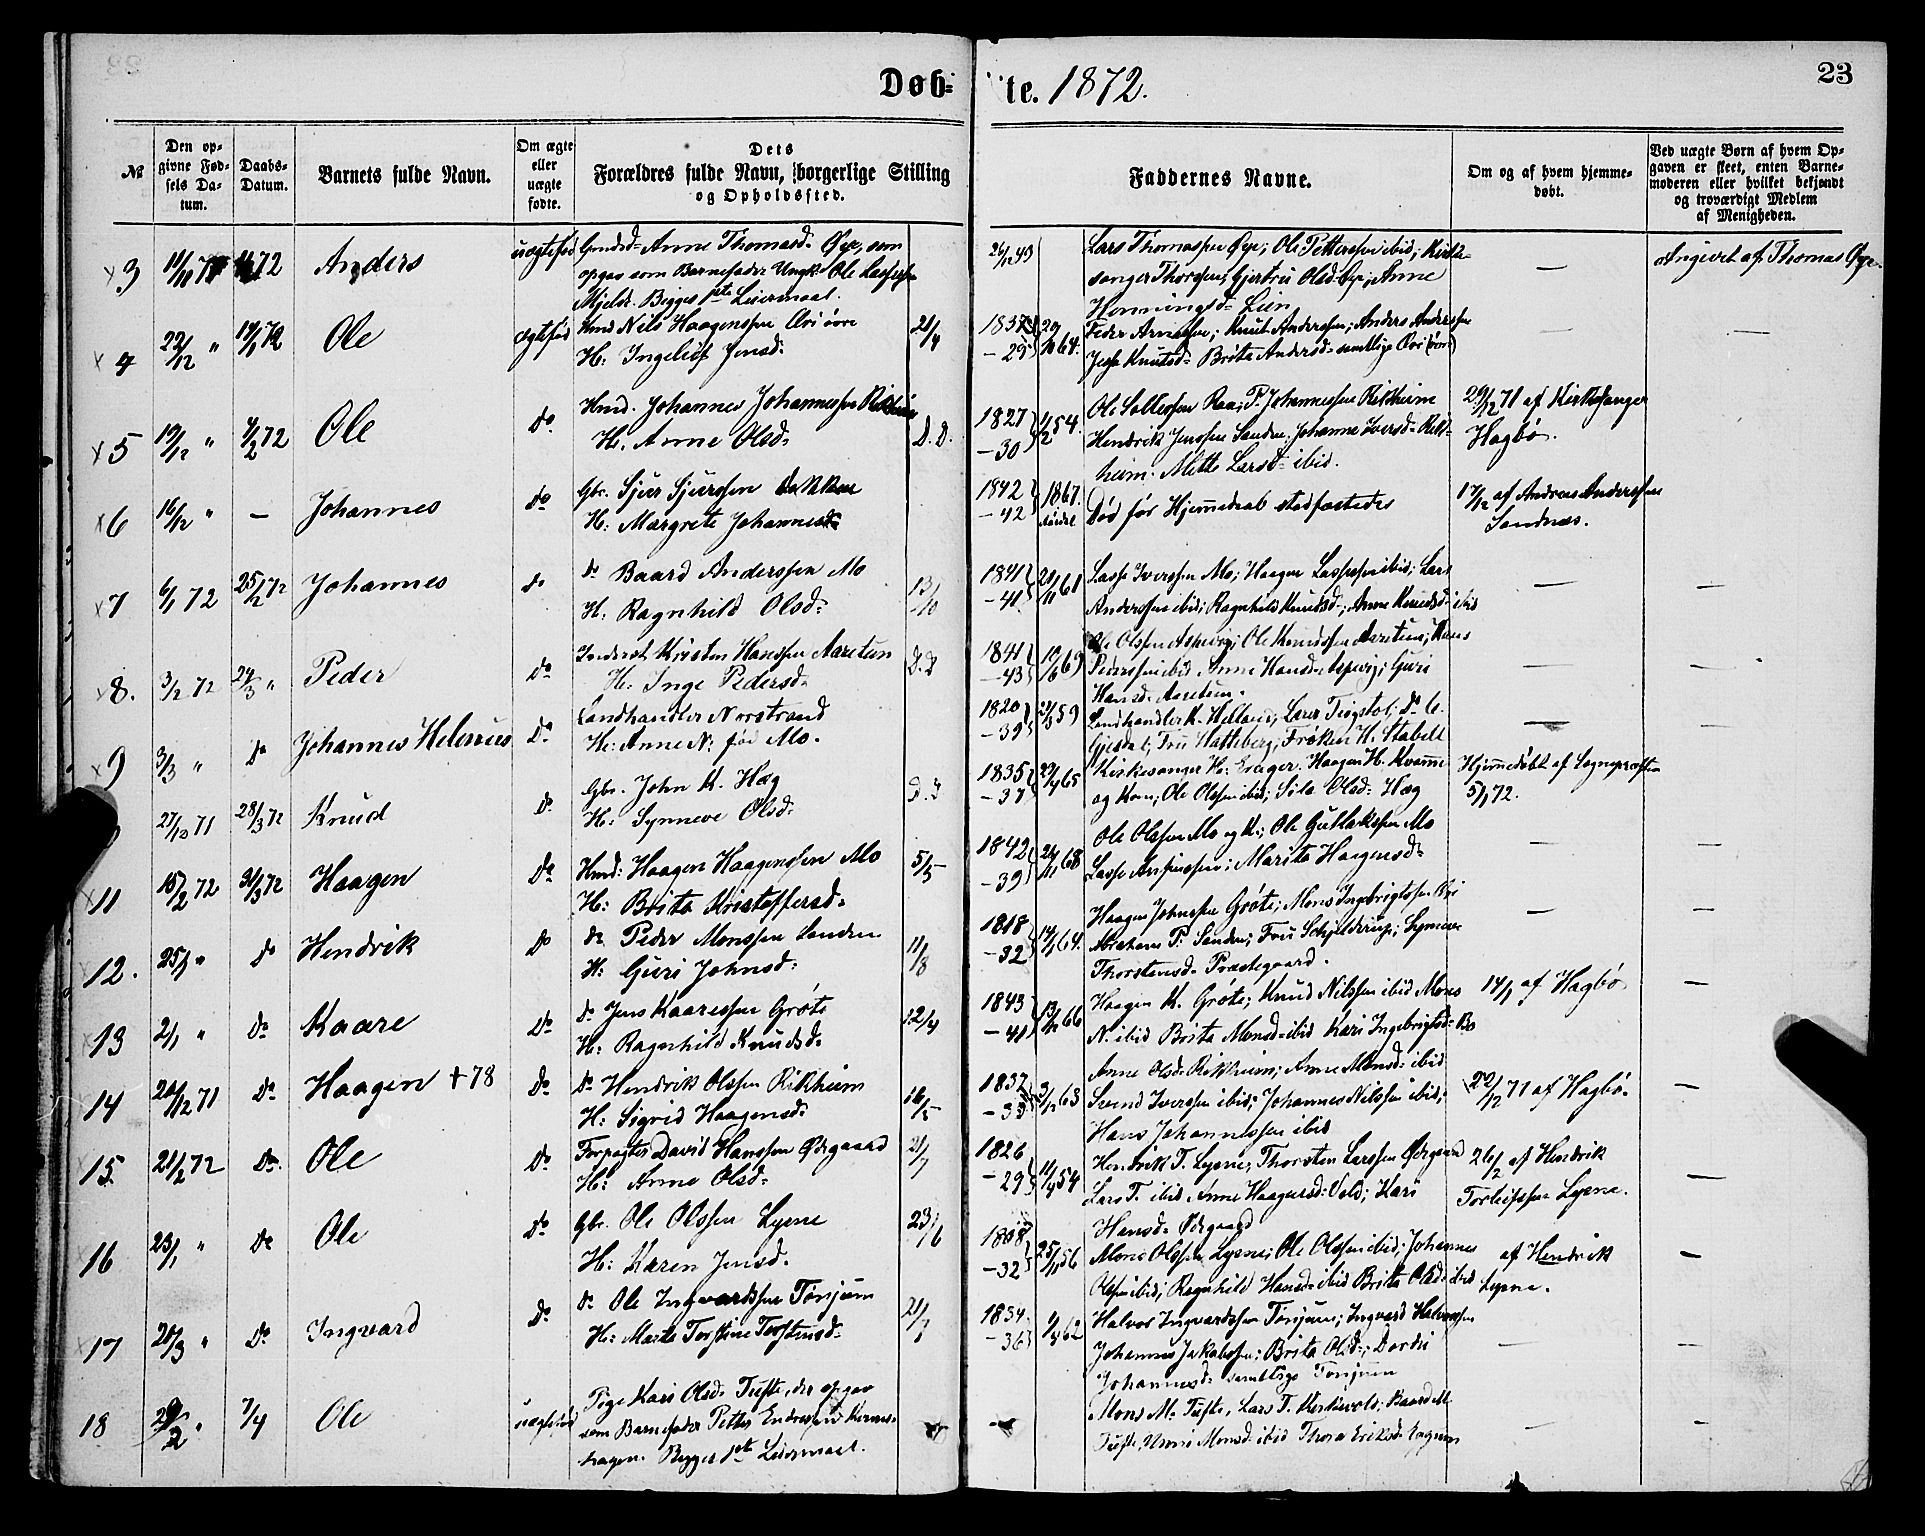 Døb-
te. 1872.
23
№
Den op-
givne Fød-
sels Da-
tum.
Daabs-
Datum.
Barnets fulde Navn.
Om ægte
eller
uægte
fødte.
Dets
Forældres fulde Navn, borgerlige Stilling
og Opholdssted.
Faddernes Navne.
Om og af hvem hjemme-
døbt.
Ved uægte Børn af hvem Op-
gaven er skeet, enten Barne-
moderen eller hvilket bekjendt
og troværdigt Medlem
af Menigheden.
3 72 Anders uægtefød Anne Thomasd. Øye, som
opgav som Barnefader Ungk. Ole Lassesen
Begges 1ste Leiermaal.
Lars Thomassen Øye; Ole Pettersen ibid; Kirke-
sanger Thorsen; Gjertru Olsd. Øye; Anne
Henningsd. Lein
Angivet af Thomas Øye.
4 22/12 " Ole ægtefød Nils Haagenssen Øvi øvre
H: Ingelief Jensd:
21/4
1837
-29
Peder; Knut Anderssen; Anders Anderssen
Knutsd. Brita Andersd. samtlige Øvi
5 19/12 " 4/2 72 Ole Do Hmd. Johannes Johannessen Rikheim
H: Anne Olsd:
D.D.
1827
-30
Ole Raa; P. Johannessen Rikheim
Hendrik Jenssen Sanden; Johanne Iversd. Rik-
heim. Mette Larsd. ibid.
29/12 71 af Kirkesanger
Hagbø.
6 16/12 " - Johannes Do Gbr. Sjur Sjurssen
H: Margrete Johannesd:
1842
-42
1867.
Aardal
Død før Hjemmedaab stadfæstedes
17/12 af Andreas Anderssen
Sandnæs.
7 6/1 72 25/2 72 Johannes do Do Baard Anderssen Mo
H: Ragnhild Olsd:
13/10
1841
-41
61
Lasse Iverssen Mo; Haagen Lassessen ibid; Lars
Anderssen ibid; Ragnhild Knudsd.; Anne Knudsd. ibid
8. 3/2 72 24/3 " Peder Do Kirsten Hanssen Aaretun
H: Inge Pedersd:
D.D
1841
-43
69
Ole Olssen Aspevig; Ole Knudssen Aaretun; Hans
Pederssen ibid Anne Hansd. Aspevig; Guri
Hansd. Aaretun.
9 3/3 " Do Johannes Helenus Do Landhandler Norstrand
H: Anne N: fød Mo.
1820
-39
59
Landhandler K. Helland; Do C.
Gjesdal; Fru Hatteberg; Frøken H. Stabell
27/12 71 28/3 72 Knud Do Gbr. John K. Hæg
H: Synneve Olsd:
D.D
1835
-37
65
Kirkesanger H: Erager. Haagen H. Kvamme
og Kone; Ole Olssen ibid; Sila Olsd. Hæg
Hjemmedøbt af Sognepræsten
5/1 72.
11 15/2 72 31/3 72 Haagen Do Hmd: Haagen Haagenssen Mo
H: Brita Kristoffersd:
5/5
1842
-39
68
Ole Olssen Mo og K.; Ole Gutlakssen Mo
Lasse; Marita Haagensd:
12. 25/1 " Do Hendrik Do Do Peder Monssen Sanden
H: Guri Johnsd:
11/18
1818
-32
64.
Haagen Johnssen Grøte; Mons Ingebrigtssen Øvi
Abraham P. Sanden; Fru Schjelderup; Synneve
Thorstensd. Præstegaard.
13 2/1 " Do Kaare Do Do Jens Kaaressen Grøte
H: Ragnhild Knudsd:
12/4
1843
-41
66
Haagen K. Grøte; Knud Nilssen ibid Mons
N. ibid Brita Monsd. ibid Kari Ingebrigtsd. Bø
14/1 af Hagbø
14 20/12 71 Do Haagen +78 Do Do Hendrik Olssen Rikheim
H: Sigrid Haagensd:
16/5
1832
-35
63
Anne Olsd. Rikheim; Anne Monsd. ibid
Svend Iverssen ibid; Johannes Nilssen ibid;
Hans Johannessen ibid
22/12 71 af Hagbø.
15. 21/2 72 Do Ole Do Forpagter David Hanssen Ødegaard
H: Anne Olsd:
21/7
1826
-29
11/4 54
Hendrik T. Lysne; Thorsten Larssen Ødegaard
Lars T. ibid Anne Haagensd: Kari
Hansd: Ødegaard
26/2 af Hendrik
Torleifssen Lysne.
16 23/1 " Do Ole Do Gbr. Ole Olssen Lysne
H: Karen Jensd.
23/6
1808
-32
25/11 56
Mons Olssen Lysne; Ole Olssen ibid; Johannes
Olssen ibid; Ragnhild Hansd. ibid Brita Olsd. ibid
af Hendrik
Lysne.
17 20/3 " Do Ingvard Do Do Ole Ingvardssen Tønjum
H: Marte Torstine Torstensd:
21/7
1834
-36
62
Halvor Ingvardssen Tønjum; Ingvard Halvorssen
Johannes Jakobssen; Brita Olsd:; Dordei
Johannesd. samtlige Tønjum
18 7/4 Ole uægtefød Pige Kari Olsd. Tufte, der opgav
som Barnefader Petter Endressen
hagen. Begges 1ste Leiermaal.
Mons M. Tufte, Lars T.; Baard M.
Tufte, Unni Monsd. ibid Thora Eriksd.